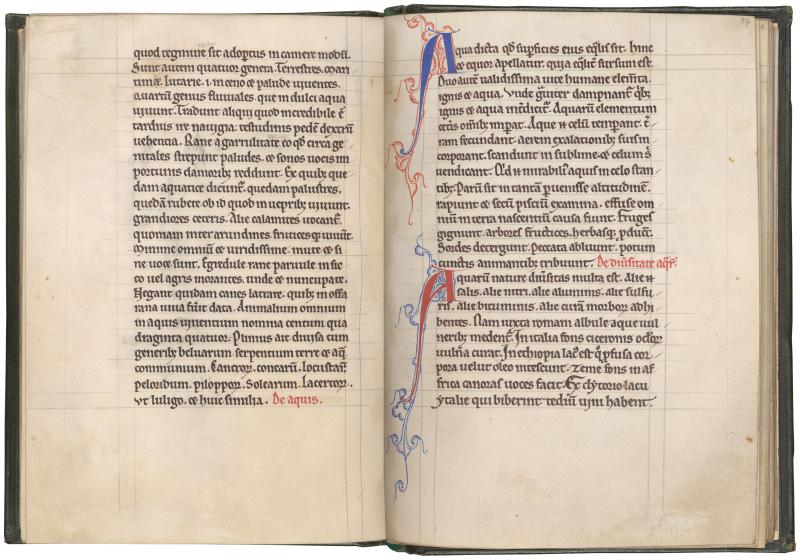 quod tegmine sit adoptus in camere modū.
Sunt autem quatuor genera. Terrestres. mari
timæ. lutarie. i. in ceno et palude uiuentes.
Quartū genus fluuiales. que in dulci aqua
uiuunt. Tradunt aliqui quod incredibile ē
tardius ire nauigia. testudinis pedē dextrū
uehentia. Rane a garrulitate eo qđ circa ge
nitales strepunt paludes. et sonos uocis im
portunis clamorib; reddunt. Ex quib; que
dam aquatice dicunt᷑. quedam palustres.
quedā rubete ob id quod in ueprib; uiuunt.
grandiores ceteris. Alie calamites uocant᷑.
quoniam inter arundines frutices q; uiuūt.
Minime omniū et uiridissime. mute et si
ne uoce sunt. Egredule rane paruule in sic
co uel agris morantes. unde et nuncupate.
Negant quidam canes latrare. quib; in offa
rana uiua fūit data. Animalium omnium
in aquis uiuentium nomina centum qua
draginta quatuor. Plinius ait diuisa cum
generib; beluarum. serpentum terre et aq̄
communium. Cancroꝝ. concarū. locustarū
peloridum. piloppoꝝ. Solearum. Lacertoꝝ.
vt luligo. et huic similia. De aquis.
Aqua dicta qđ suꝑficies eius eq̄lis sit. hinc
et equor apellatur. quia equit᷑ sursum est.
Duo autē ualidissima uite humane elem̄ta.
ignis et aqua. Vnde gͣuiter dampnant᷑ qͥb;
ignis et aqua int᷑dicit᷑. Aquarū elementum
cetͥs om̄ib; imꝑat. Aque n̄ celū temperant. t᷑
ram fecundant. aerem exalationib; suis in
corporant. scandunt in sublime. et celum s̄
uendicant. Qͥd n̄ mirabilis aquis in celo stan
tib;. Parū sit in tantā ꝑuenisse altitudinē.
rapiunt et secū pisciū examina. effuse om
niū in terra nascentiū causa fiunt. Fruges
gignunt. arbores frutices. herbasq; ꝓducūt.
Sordes detergunt. Peccata abluunt. potum
cunctis animantib; tribuunt. De diūsitate aq̄ꝝ.
Aquarū nature diūsitas multa est. Alie n̄
salis. alie nitri. alie aluminis. alie sulfu
ris. alie bituminis. alie curā morboꝝ adhi
bentes. Nam iuxta romam albule aque uul
nerib; medent᷑. In italia fons ciceronis ocłoꝝ
uulñā curat. In ethiopia lac᷒ est qͦ ꝑfusa cor
pora uelut oleo nitescunt. Zeme fons in af
frica canoras uoces facit. Ex clytorio lacu
ytalie qui biberint tediū uini habent.